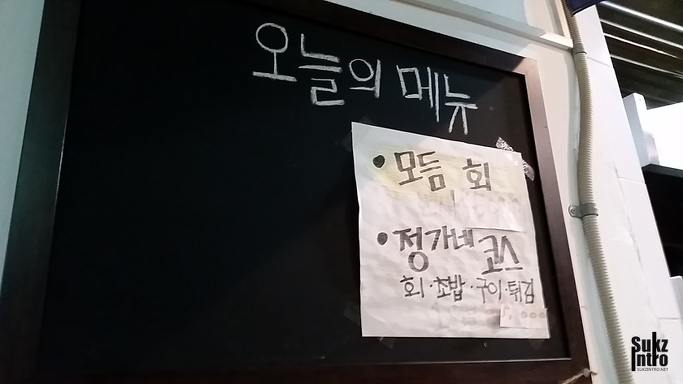 오늘의 메뉴
• 모듬 회
• 정가네 코스
회·초밥·구이·튀김
Sukz
Intro
SUKZINTRO.NET